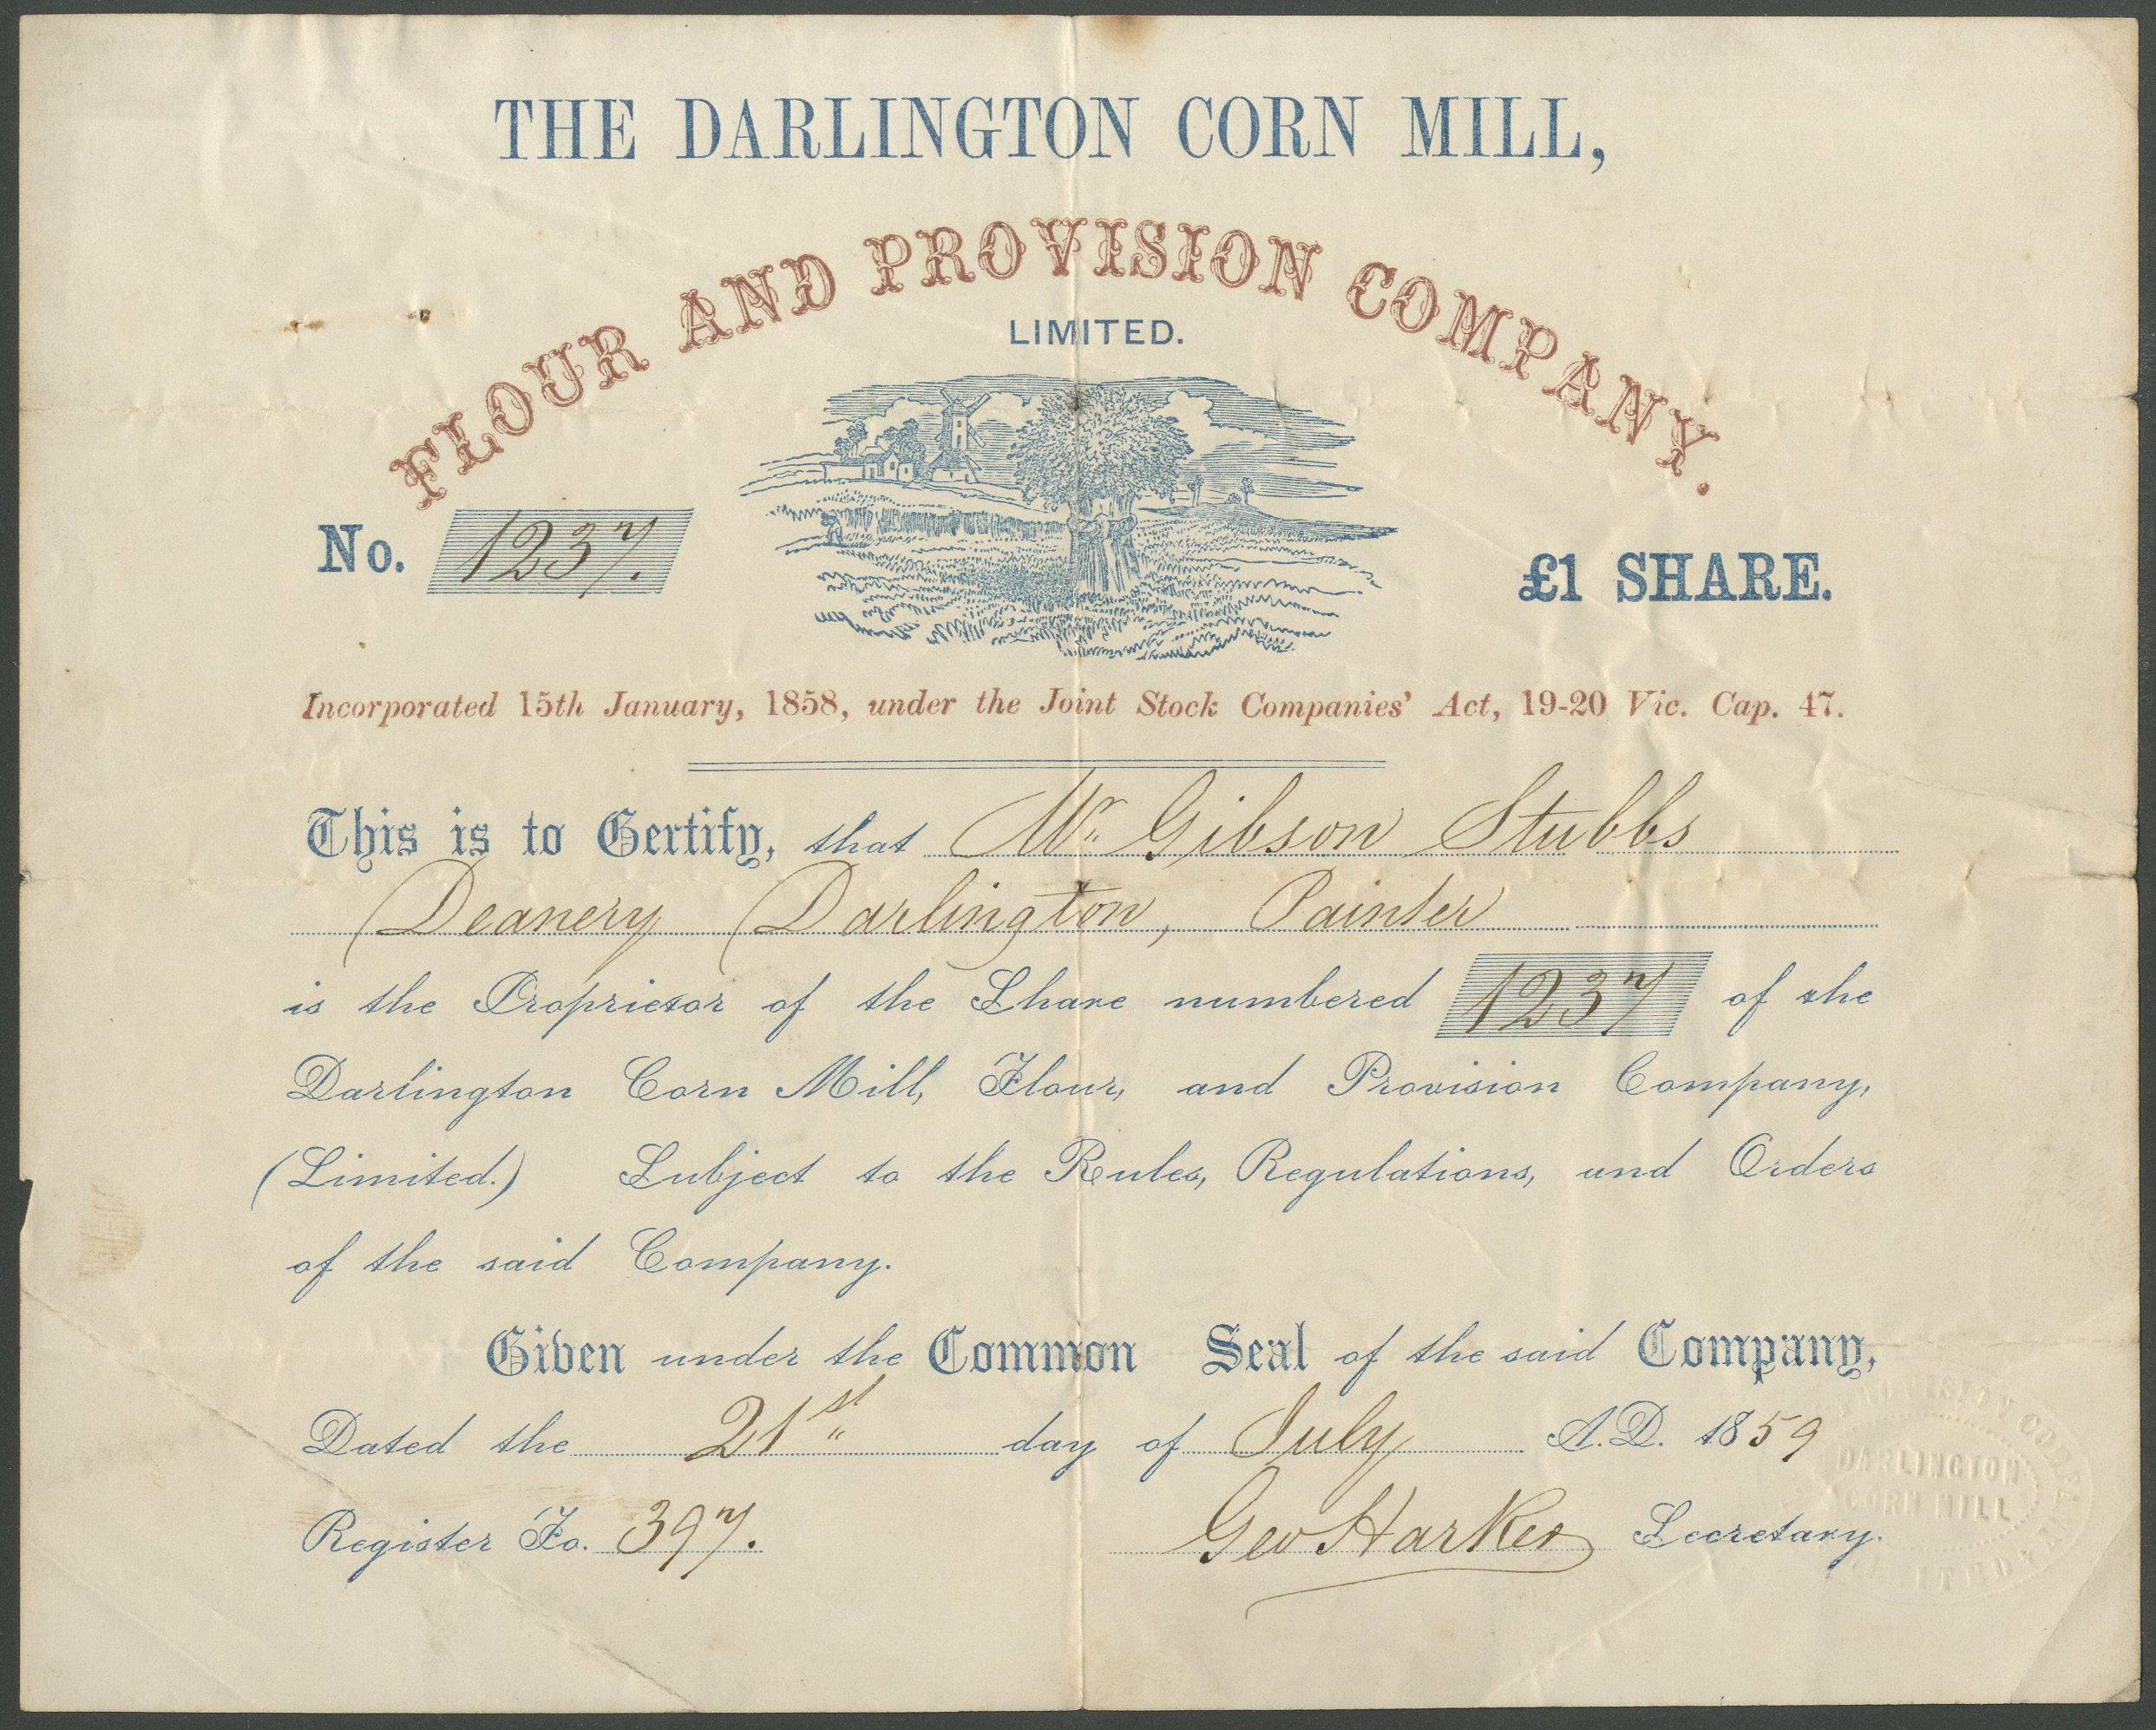 THE DARLINGTON CORN MILL,
FLOUR AND PROVISION COMPANY.
LIMITED.
No. 1237.
£1 SHARE.
Incorporated 15th January, 1858, under the Joint Stock Companies' Act, 19-20 Vic. Cap. 47.
This is to Certify, that Mr. Gibson Stubbs
Deanery Darlington, Painter
is the Proprietor of the Share numbered 1237 of the
Darlington Corn Mill, Flour, and Provision Company,
(Limited.) Subject to the Rules, Regulations, and Orders
of the said Company.
Given under the Common Seal of the said Company,
Dated the 21st day of July A.D. 1859
Register Fo. 397.
Geo Harker Secretary.
PROVISION COMPA
DARLINGTON
CORN MILL